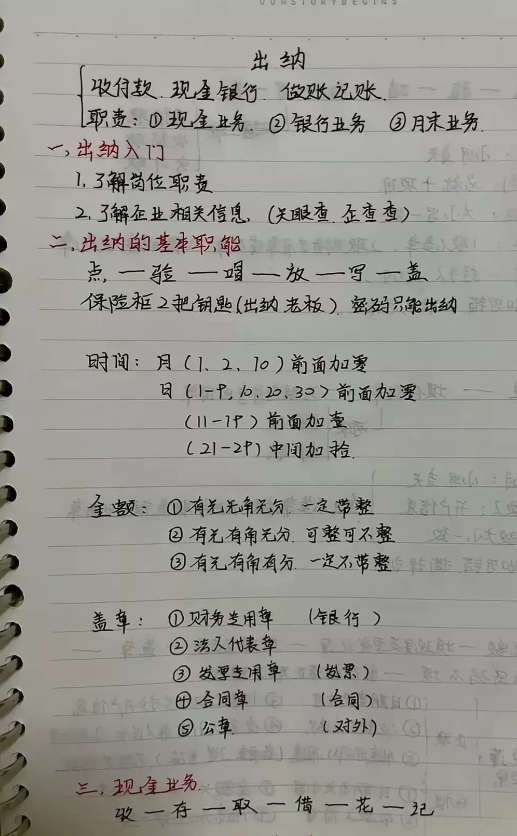 OURSTORYBEGINS
出纳
收付款 现金银行 做账记账
职责：①现金业务 ②银行业务 ③月末业务
一、出纳入门
1.了解岗位职责
2.了解企业相关信息（天眼查 企查查）
二、出纳的基本职能
点—验—唱—放—写—盖
保险柜2把钥匙(出纳 老板) 密码只能出纳
时间：月（1、2、10）前面加零
日（1-9,10.20.30）前面加零
（11-19）前面加壹
（21-29）中间加拾
金额：①有元无角无分 一定带整
②有元有角无分 可整可不整
③有元有角有分 一定不带整
盖章：①财务专用章 （银行）
②法人代表章
③发票专用章 （发票）
④合同章 （合同）
⑤公章 （对外）
三、现金业务
收—存—取—借—花—记